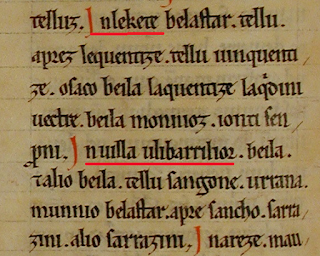 telluz. Jn lekete belastar. tellu.
aprez lequentize. tellu uinquenti
ze. osaco beila laquentize laq̇dini
uectre. beila monnioz. ionti sen
Jn uilla ulibarrihor. beila.
talio beila. tellu sangone. urrana.
munnio belastar. apre sancho. sarra
zini. alio sarrazini. Jn nareze. mau